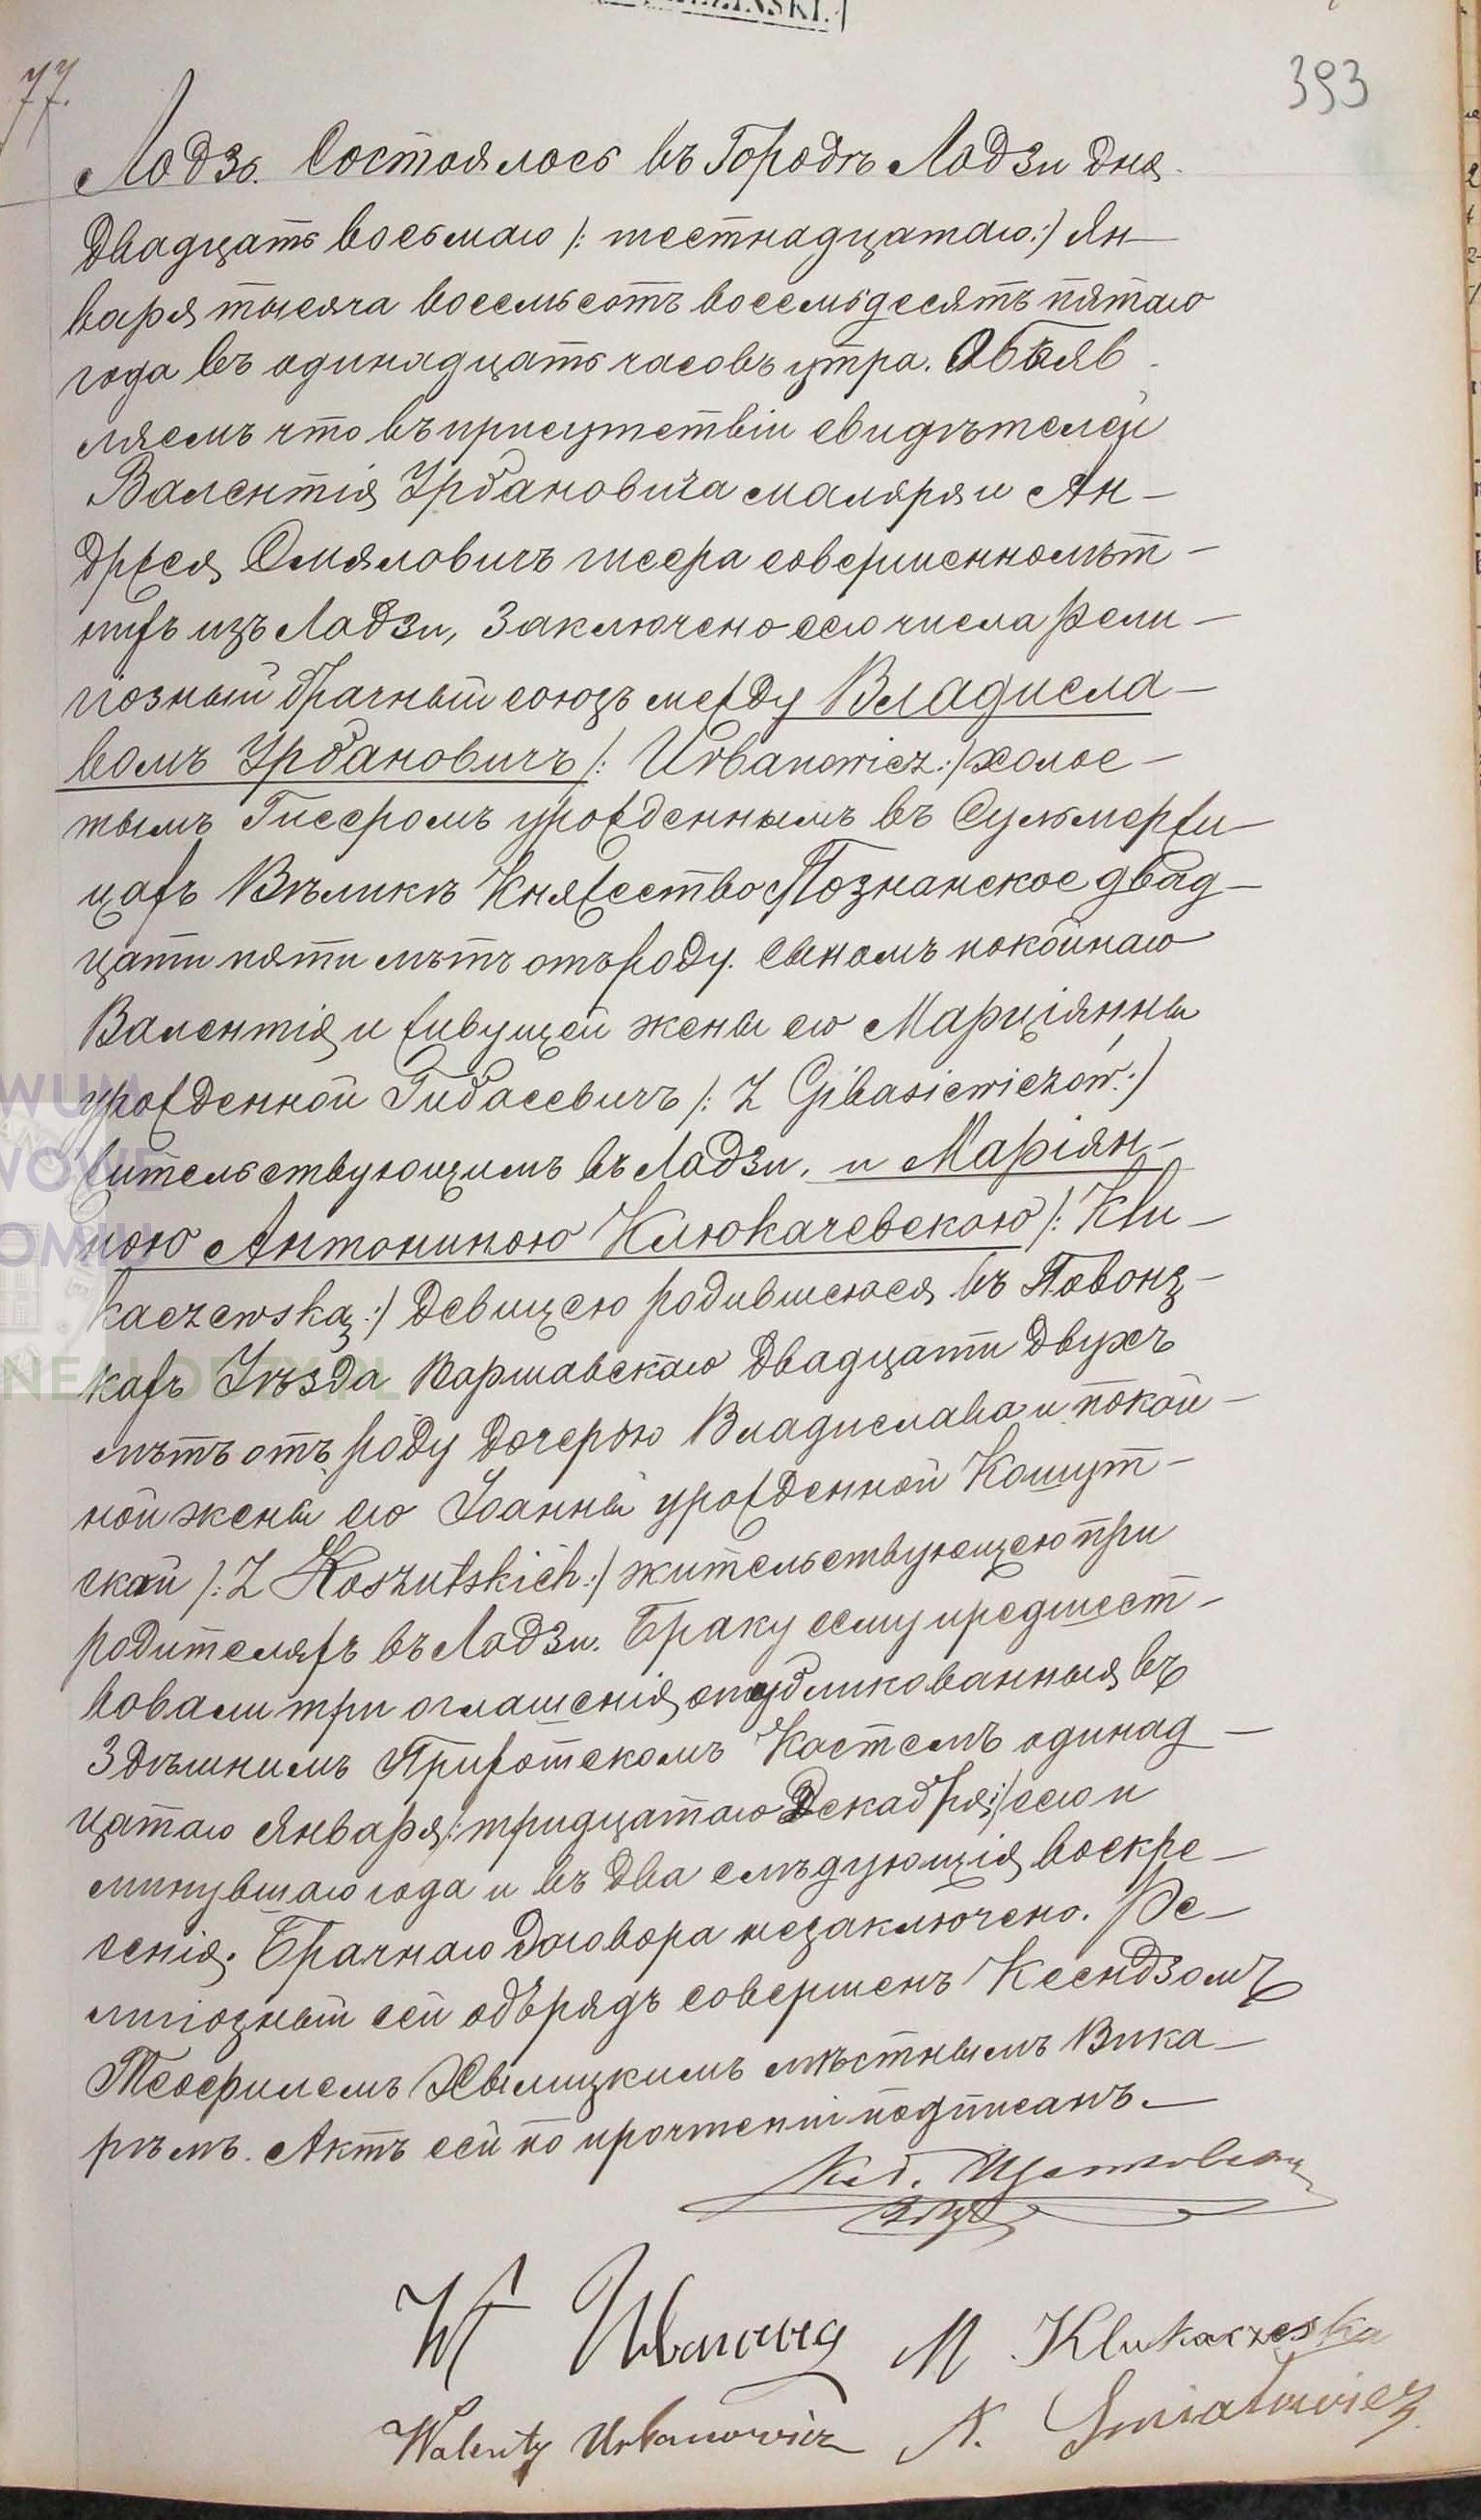 77.
393
Лодзь. Состоялось въ Городѣ Лодзи дня
двадцать восьмаго /: шестнадцатаго :/ Ян-
варя тысяча восемьсотъ восемьдесятъ пятаго
года въ одинадцать часовъ утра. Объяв-
ляемъ что въ присутствіи свидѣтелей
Валентія Урбановича маляря и Ан-
држея Смяловичъ гисера совершеннолѣт-
нихъ изъ Лодзи, заключено сего числа рели-
гіозный брачный союзъ между Владисла-
вомъ Урбановичъ /: Urbanowicz :/ холос-
тымъ Гисеромъ урожденнымъ въ Сульмержи-
цахъ Вѣликѣ Княжество Познанское двад-
цати пяти лѣтъ отъ роду. сыномъ покойнаго
Валентія и живущей жены его Марціянны
урожденной Гибасевичъ /: Z Gibasiewiczów :/
жительствующимъ въ Лодзи, и Маріян-
ною Антониною Клюкачевскою /: Klu-
kaczewską :/ девицею родившеюся въ Повонз-
кахъ Уѣзда Варшавскаго двадцати двухъ
лѣтъ отъ роду дочерью Владислава и покой-
ной жены его Іоанны урожденной Кошут-
ской /: Z Koszutskich :/ жительствующею при
родителяхъ въ Лодзи. Браку сему предшест-
вовали три оглашенія опубликованныя въ
здѣшнимъ Приходскомъ Костелѣ одинад-
цатаго Января /: тридцатаго Декабря :/ сего и
минувшаго года и въ два слѣдующія воскре-
сенія. Брачнаго договора незаключено. Ре-
лигіозный сей обърядъ совершенъ Ксендзомъ
Теофилемъ Хвылицкимъ мѣстнымъ Вика-
ріѣмъ. Актъ сей по прочтеніи подписанъ. —
W Urbanowicz M Klukaczeska
Walenty Urbanowicz A. Smiałowicz